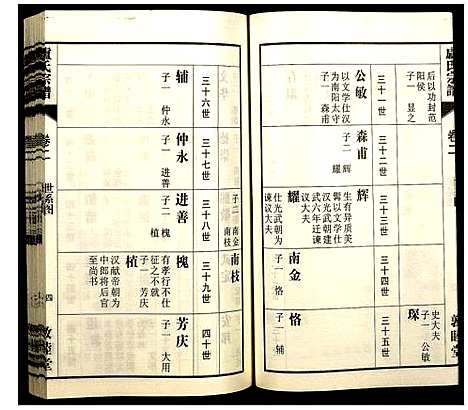 卢氏宗谱
卷二
后以功封范
阳侯
子一 昱之
琛
史大夫
子一 公敏
三十一世
公敏
以文学仕汉
为南阳太守
子一 森甫
三十二世
森甫
子二 辉
耀
三十三世
辉
生有异质美
髯以文学仕
汉光武朝建
武六年迁谏
议大夫
耀
仕光武朝为
谏议大夫
三十四世
南金
子一 恪
三十五世
恪
子二 辅
敦睦堂
子二 南金
南枝
南枝
三十六世
辅
子一 仲永
三十七世
仲永
子一 进善
三十八世
进善
子二 槐
植
三十九世
槐
有孝行不仕
征之不就
子一 芳庆
植
汉献帝朝为
中郎将后官
至尚书
四十世
芳庆
子一 大用
卢氏宗谱
卷二
世系图
四
敦睦堂